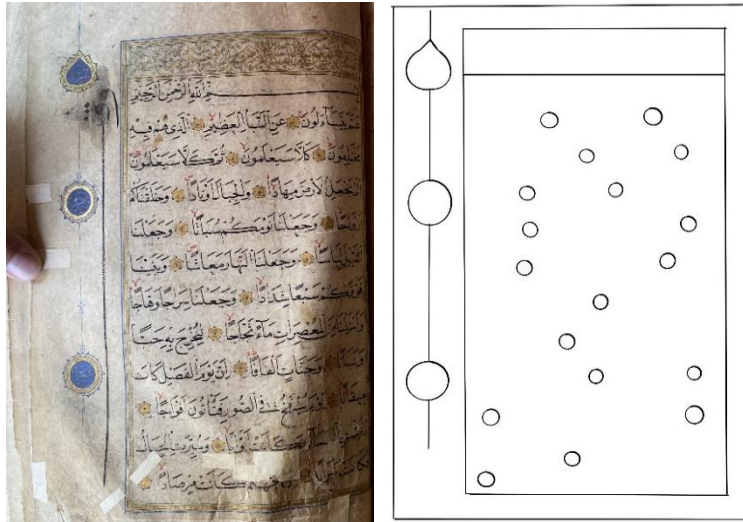 بسم الله الرحمن الرحيم
عم يتساءلون عن النبإ العظيم الذي هم فيه
مختلفون كلا سيعلمون ثم كلا سيعلمون
ألم نجعل الأرض مهادا والجبال أوتادا وخلقناكم
أزواجا وجعلنا نومكم سباتا وجعلنا
الليل لباسا وجعلنا النهار معاشا وبنينا
فوقكم سبعا شدادا وجعلنا سراجا وهاجا
وأنزلنا من المعصرات ماء ثجاجا لنخرج به حبا
ونباتا وجنات ألفافا إن يوم الفصل كان
ميقاتا يوم ينفخ في الصور فتأتون أفواجا
وفتحت السماء فكانت أبوابا وسيرت الجبال
فكانت سرابا إن جهنم كانت مرصادا